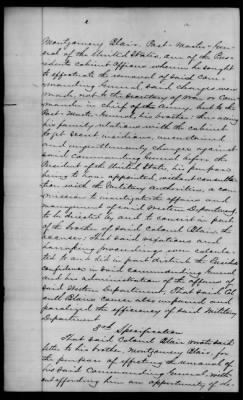 Montgomery Blair, Post-Master-Gen-
eral of the United States, one of the Pres-
idents Cabinet Officers wherein he sought
to effectuate the removal of said Com-
manding General, said charges were
made, not to the Secretary of War or Com-
mander in chief of the Army but to the
Post-Master-General, his brother: thus using
his family relations with the cabinet
to get secret malicious, unsustained
and ungentlemanly charges against
said Commanding General before the
President of the United States, on purpose
being to have appointed, without consulta-
tion with the Military Authorities, a com-
mission to investigate the affairs and
management of said Western Department,
to be directed by and to consist in part
of the brother of said Colonel Blair, the
accuser: That said vexatious and
harrassing proceedings were calcula-
ted to and did in part disturb the Presidents
confidence in said commanding General
and his administration of the affairs of
said Western Department, That said Col-
onel Blairs course also impaired and
paralized the efficiency of said Military
Department.
3rd Specification
That said Colonel Blair wrote said
letter to his brother, Montgomery Blair, for
the purpose of effecting the removal of
his said Commanding General, with-
out affording him an opportunity of de-